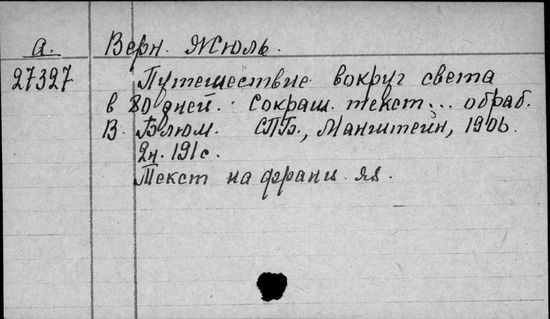 а. Верн. Жюль.
27327 Путешествие вокруг света
в 80 дней. Сокращ. текст... обраб.
В. Блюм. СПБ., Мангштейн, 1906.
2н. 191с.
Текст на франц. яз.